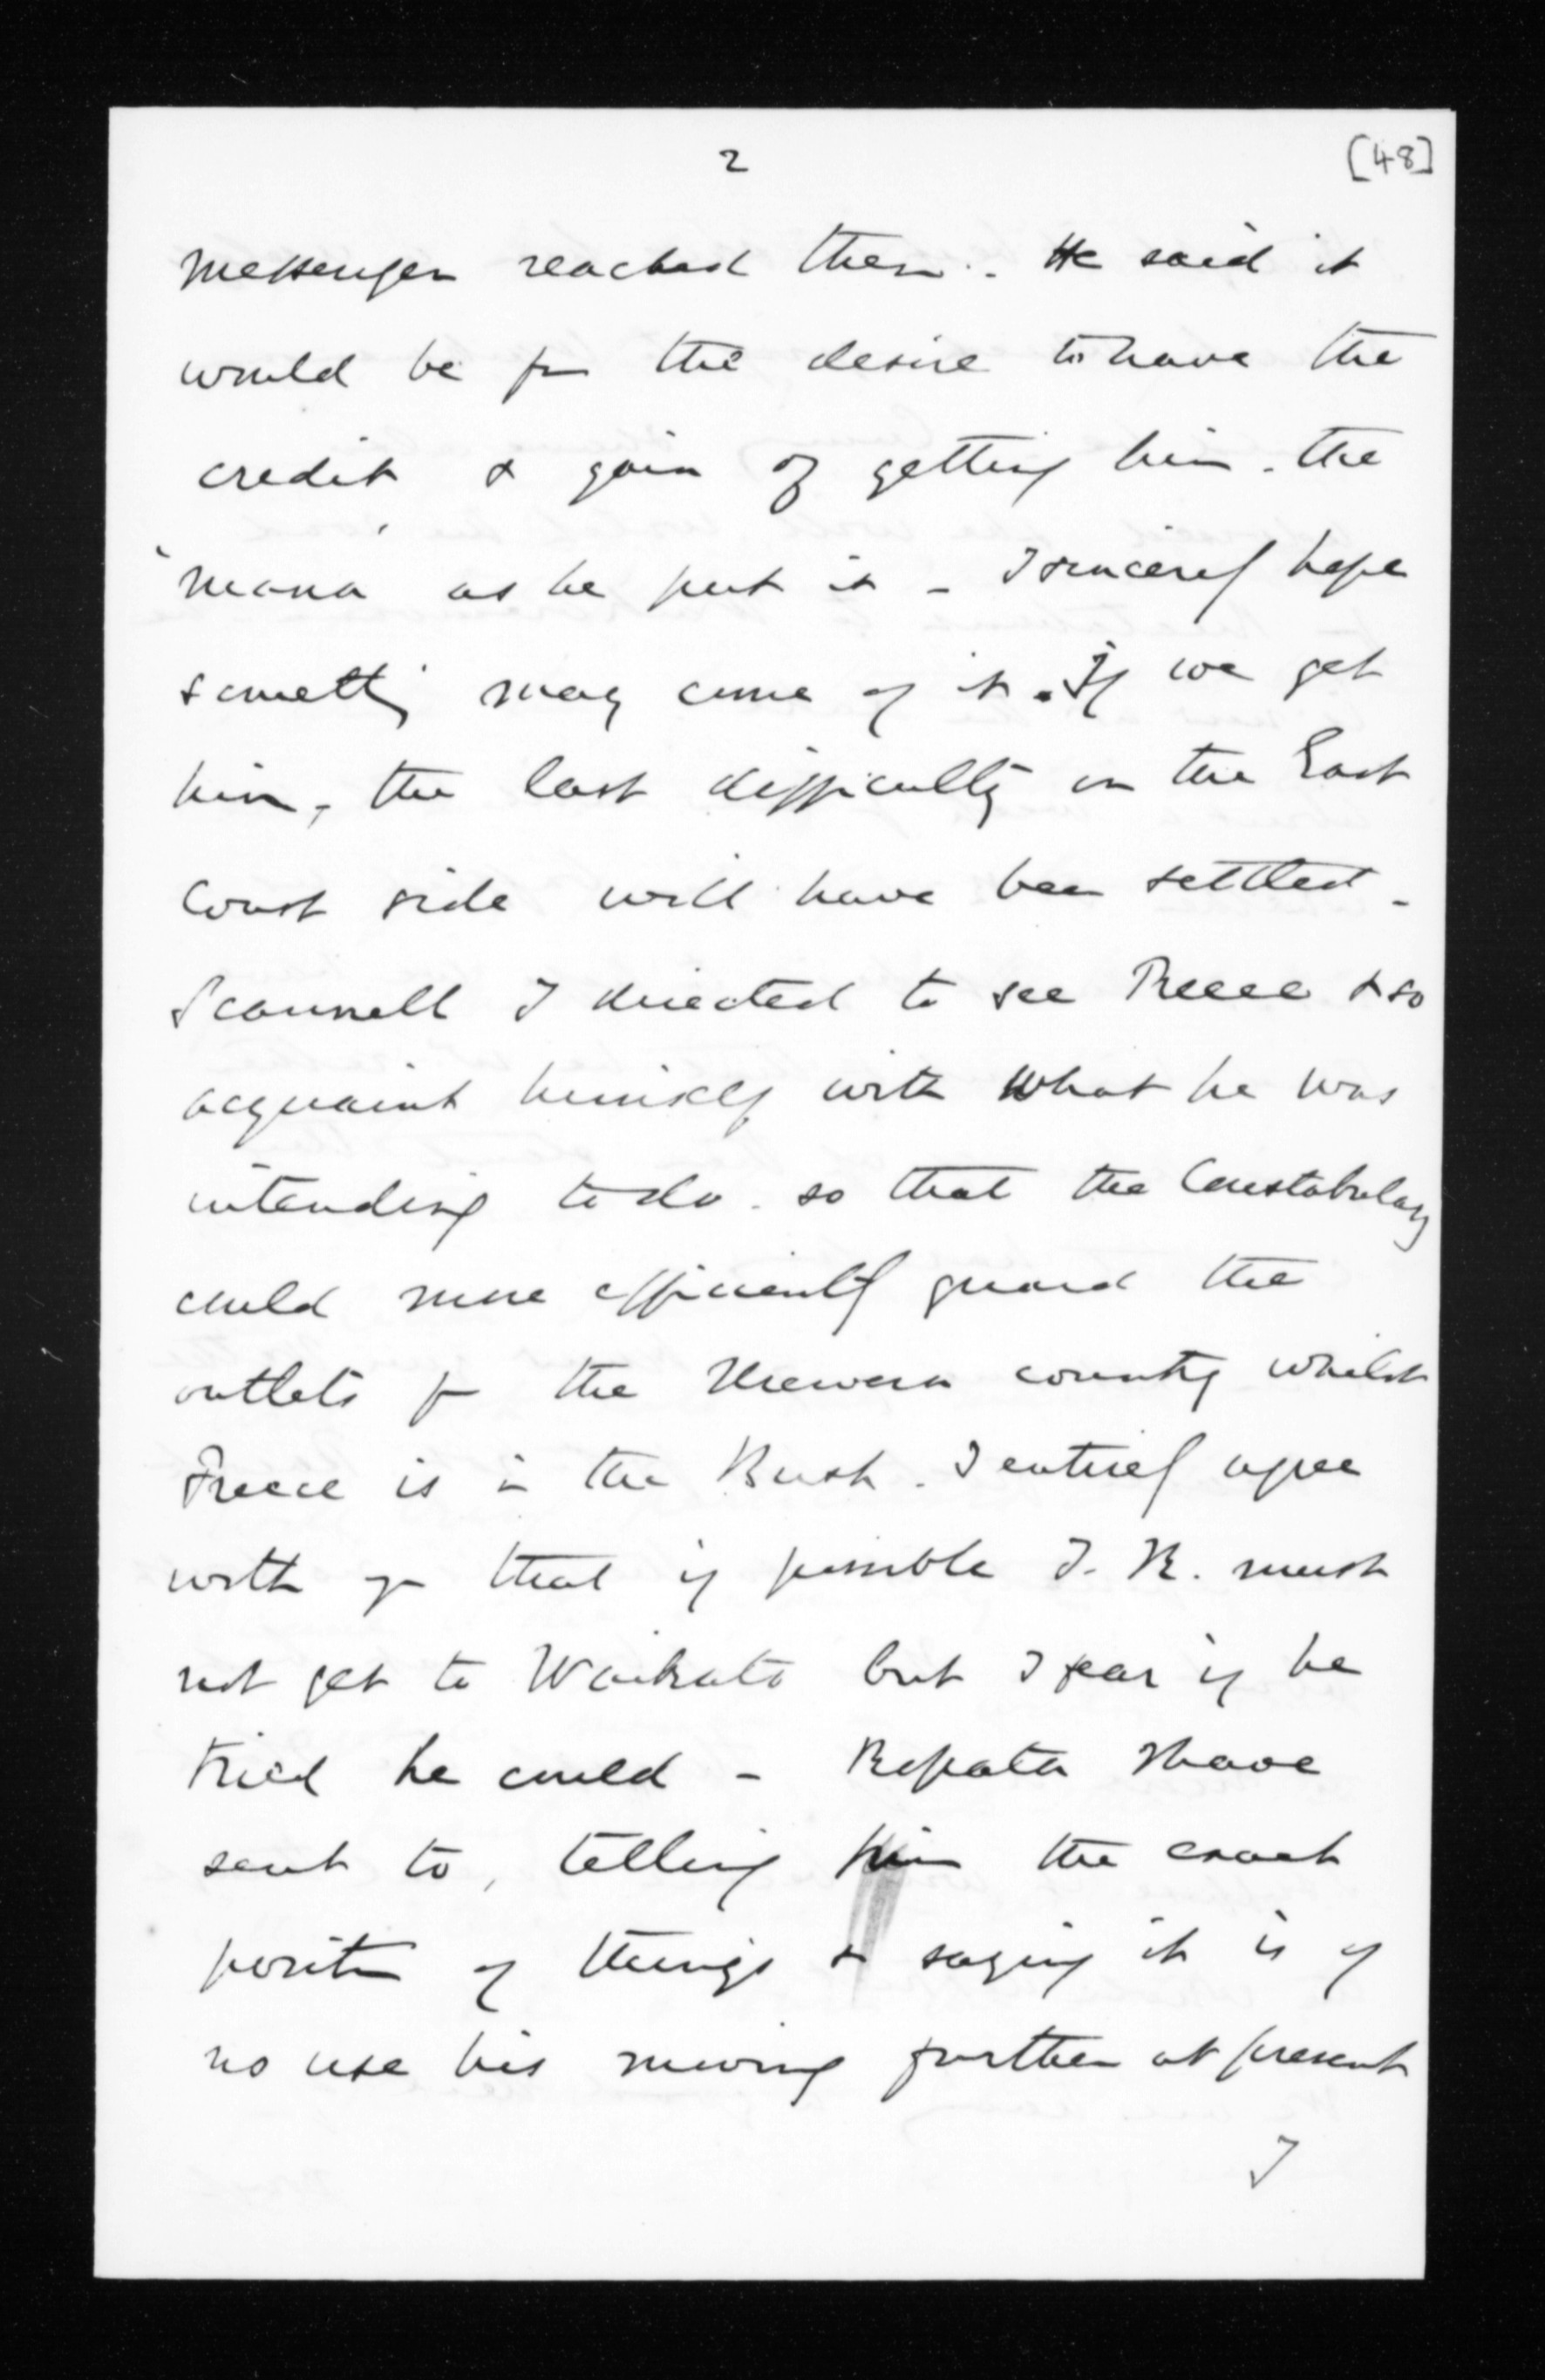 2
[48]
messenger reached them. He said it
would be for the desire to have the
credit & gain of getting him. the
'mana' as he put it - I sincerely hope
something may come of it. If we get
him, the last difficulty on the East
Coast side will have been settled -
Scannell I directed to see Preece & so
acquaint himself with what he was
intending to do. so that the Constabulary
could more efficiently guard the
outlets fr the Urewera country whilst
Preece is in the Bush. I entirely agree
with you that if possible T. K. must
not get to Waikato but I fear if he
tried he could - Ropata I have
sent to, telling him the exact
position of things & saying it is of
no use his moving further at present
I